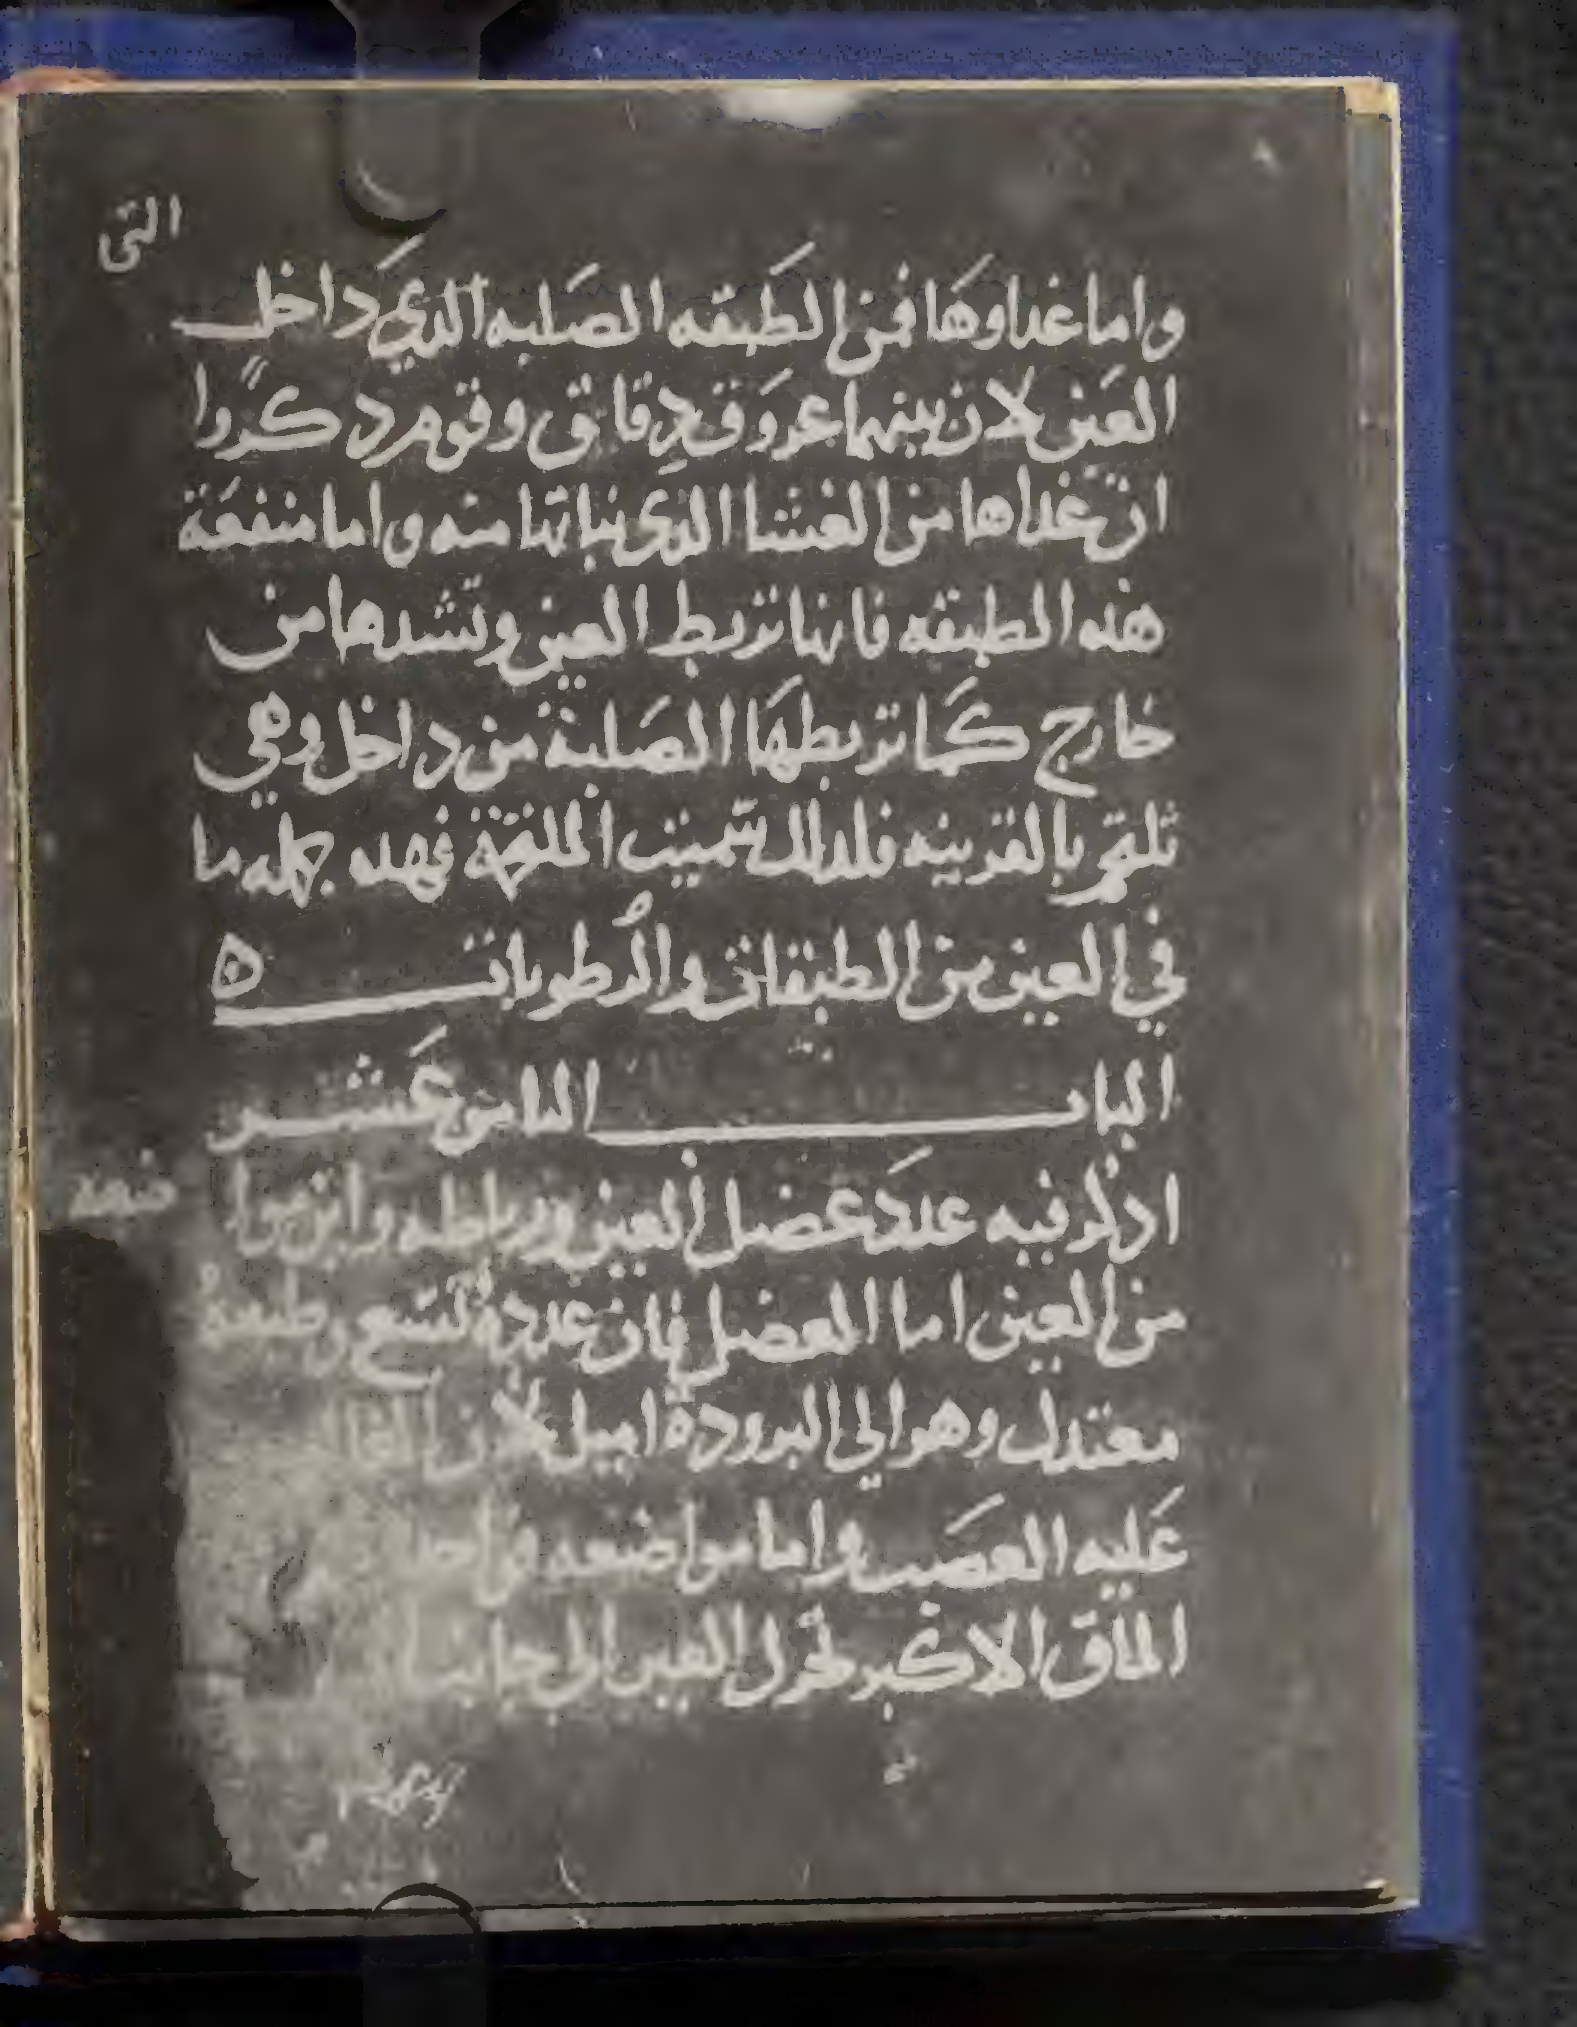 التى
واما غداوها فمن الطبقه الصلبه الدي داخل
العين لان بينهما عروق دقاق وقوم دكروا
ان غداها من الغشا الدى نباتها منه واما منفعة
هذه الطبقه فانها تربط العين وتشدها من
خارج كما تربطها الصلبة من داخل وهي
تلتحم بالقرنيه فلدلك سميت الملتحمة فهده جمله ما
في العين من الطبقات والرطوبات ه
الباب الثامن عشر
اذكر فيه عدد عضل العين ورباطه واين موا
ضعه
من العين اما العضل فان عدده تسع وطبعه
معتدل وهو الي البرودة اميل لان الغالب
عليه العصب واما مواضعه فواحده
الماق الاكبر تحرك العين الي جانب